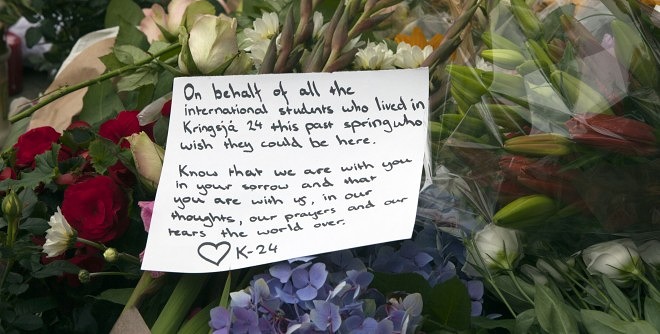 On behalf of all the
international students who lived in
Kringsjå 24 this past spring who
wish they could be here.
Know that we are with you
in your sorrow and that
you are with us, in our
thoughts, our prayers and our
tears the world over.
♡ K-24